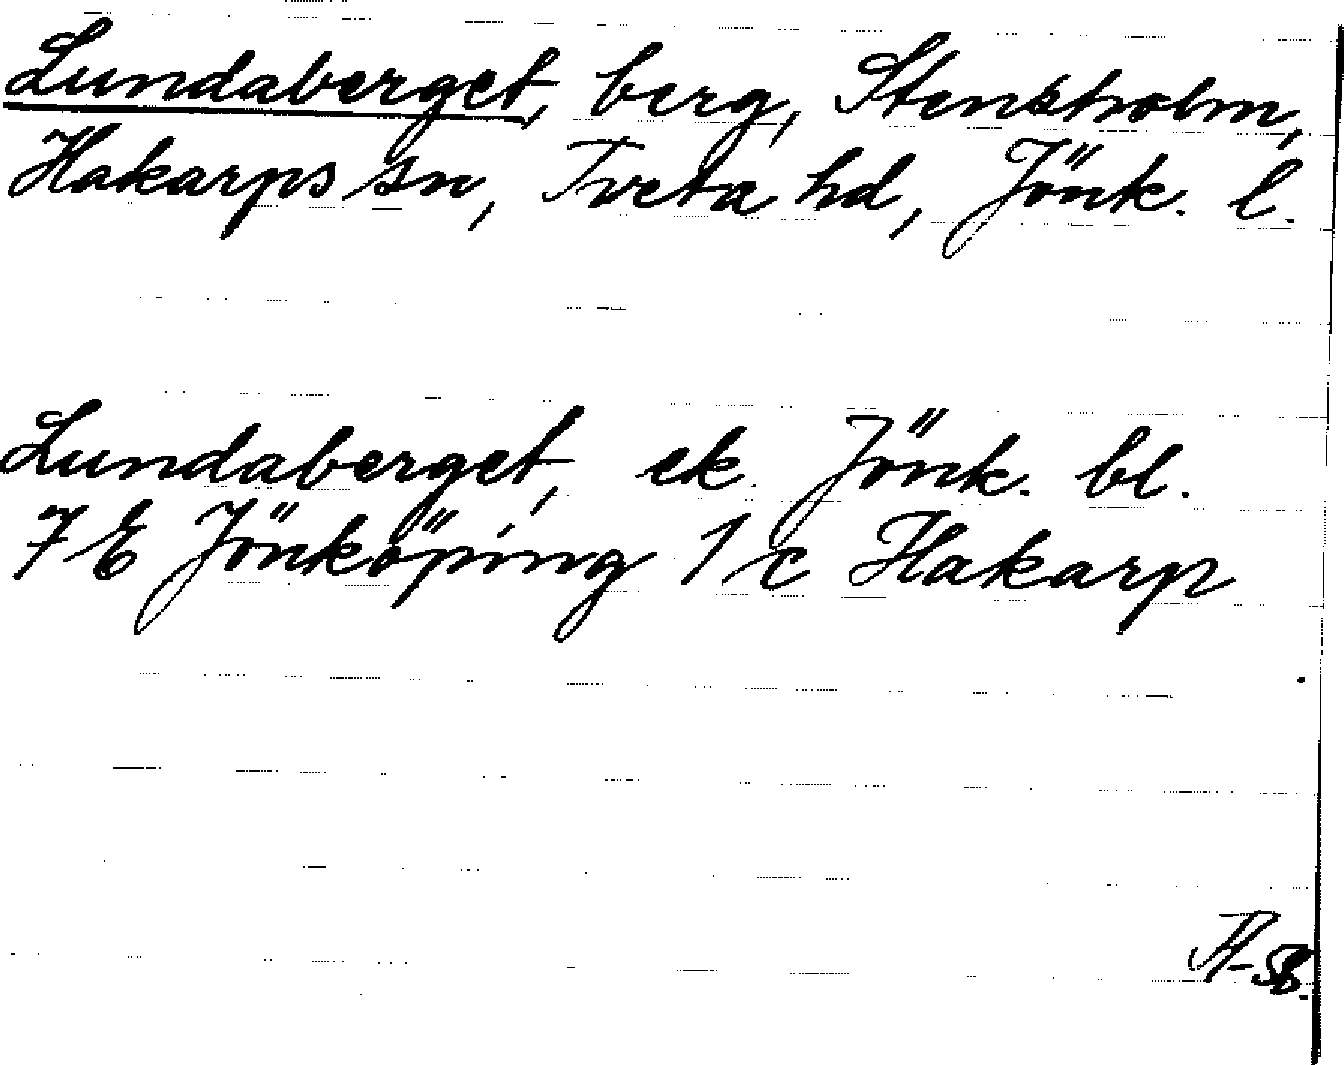 Lundaberget, berg, Stensholm,
Hakarps sn, Tveta hd, Jönk. l.
Lundaberget, ek. Jönk. bl.
7 E Jönköping 1 c Hakarp